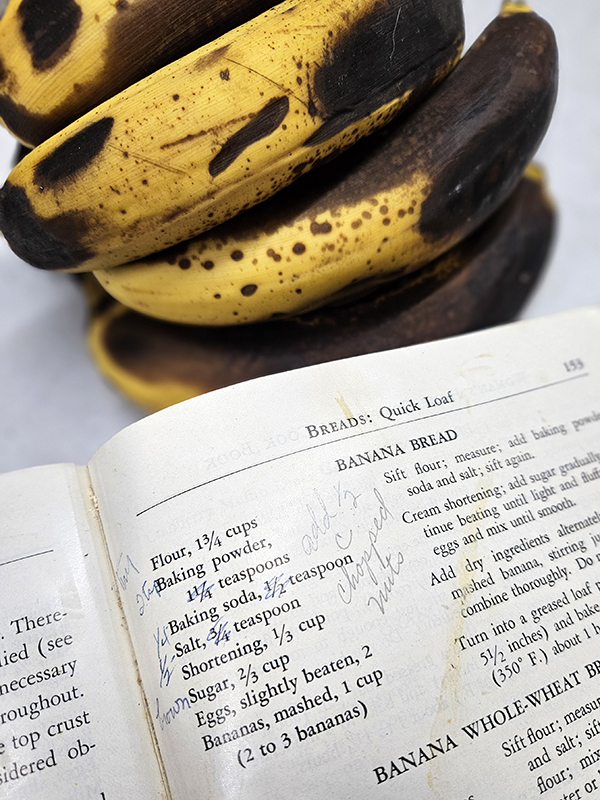 153
BREADS: Quick Loaf
BANANA BREAD
Flour, 1¾ cups
Baking powder,
1¼ teaspoons
Baking soda, ½ teaspoon
Salt, ¾ teaspoon
Shortening, ⅓ cup
brown Sugar, ⅔ cup
Eggs, slightly beaten, 2
Bananas, mashed, 1 cup
(2 to 3 bananas)
add ½
C
chopped
nuts
Sift flour; measure; add baking powde
soda and salt; sift again.
Cream shortening; add sugar gradually
tinue beating until light and fluff
eggs and mix until smooth.
Add dry ingredients alternatel
mashed banana, stirring ju
combine thoroughly. Do n
Turn into a greased loaf p
5½ inches) and bake
(350° F.) about 1 h
BANANA WHOLE-WHEAT BR
Sift flour; measu
and salt; sif
flour; mix
ter or
. There-
lied (see
necessary
roughout.
e top crust
sidered ob-